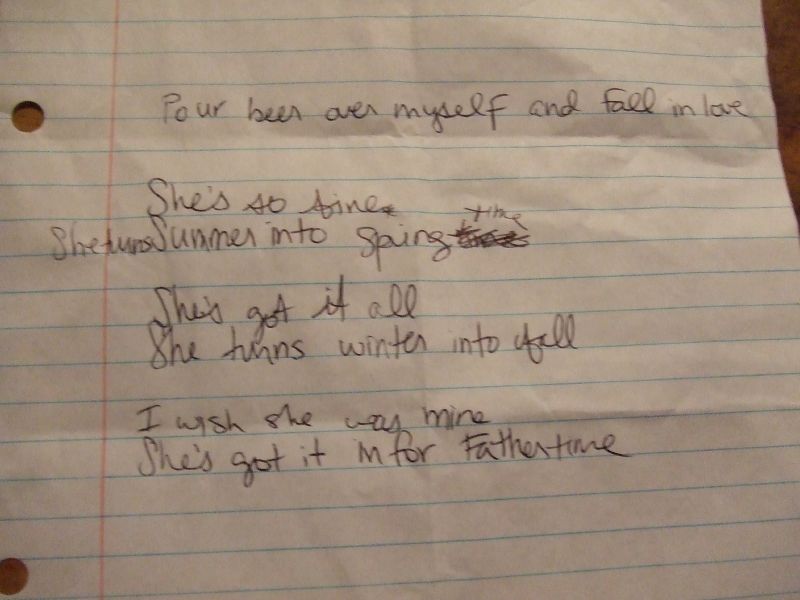 Pour beer over myself and fall in love
She's so fine
She turns Summer into Spring time
She's got it all
She turns winter into fall
I wish she was mine
She's got it in for Father time